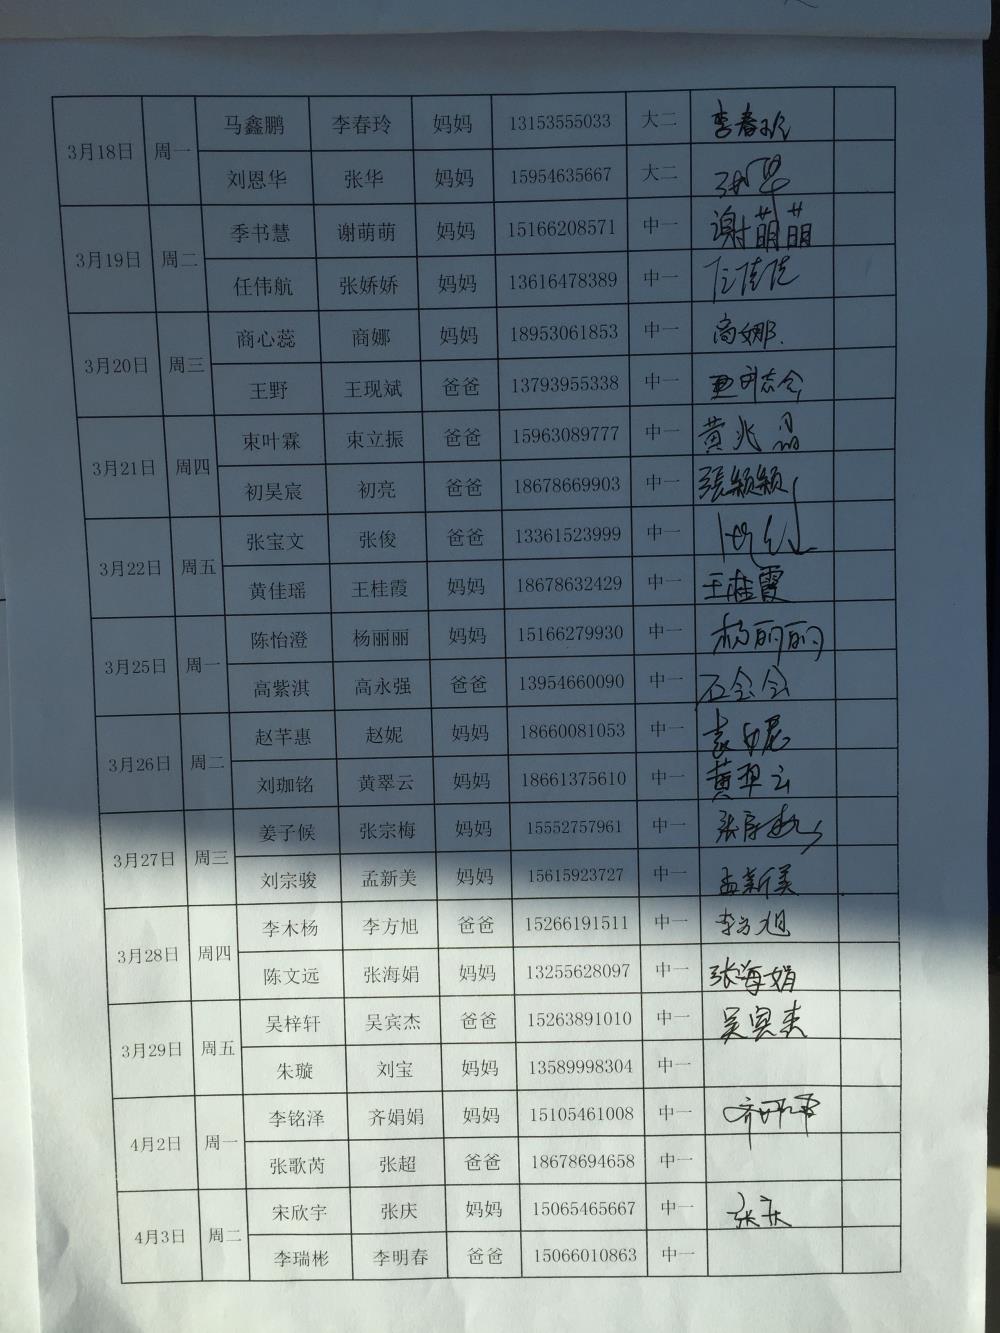 3月18日 周一 马鑫鹏 李春玲 妈妈 13153555033 大二 李春玲
刘恩华 张华 妈妈 15954635667 大二 张华
3月19日 周二 季书慧 谢萌萌 妈妈 15166208571 中一 谢萌萌
任伟航 张娇娇 妈妈 13616478389 中一
3月20日 周三 商心蕊 商娜 妈妈 18953061853 中一 商娜
王野 王现斌 爸爸 13793955338 中一
3月21日 周四 束叶霖 束立振 爸爸 15963089777 中一 黄兆晶
初昊宸 初亮 爸爸 18678669903 中一 張颖颖
3月22日 周五 张宝文 张俊 爸爸 13361523999 中一
黄佳瑶 王桂霞 妈妈 18678632429 中一 王桂霞
3月25日 周一 陈怡澄 杨丽丽 妈妈 15166279930 中一 杨丽丽
高紫淇 高永强 爸爸 13954660090 中一 石会会
3月26日 周二 赵芊惠 赵妮 妈妈 18660081053 中一
刘珈铭 黄翠云 妈妈 18661375610 中一 黄翠云
3月27日 周三 姜子候 张宗梅 妈妈 15552757961 中一 张宗梅
刘宗骏 孟新美 妈妈 15615923727 中一 孟新美
3月28日 周四 李木杨 李方旭 爸爸 15266191511 中一 李方旭
陈文远 张海娟 妈妈 13255628097 中一 张海娟
3月29日 周五 吴梓轩 吴宾杰 爸爸 15263891010 中一 吴宾杰
朱璇 刘宝 妈妈 13589998304 中一
4月2日 周一 李铭泽 齐娟娟 妈妈 15105461008 中一 齐娟娟
张歌芮 张超 爸爸 18678694658 中一
4月3日 周二 宋欣宇 张庆 妈妈 15065465667 中一 张庆
李瑞彬 李明春 爸爸 15066010863 中一